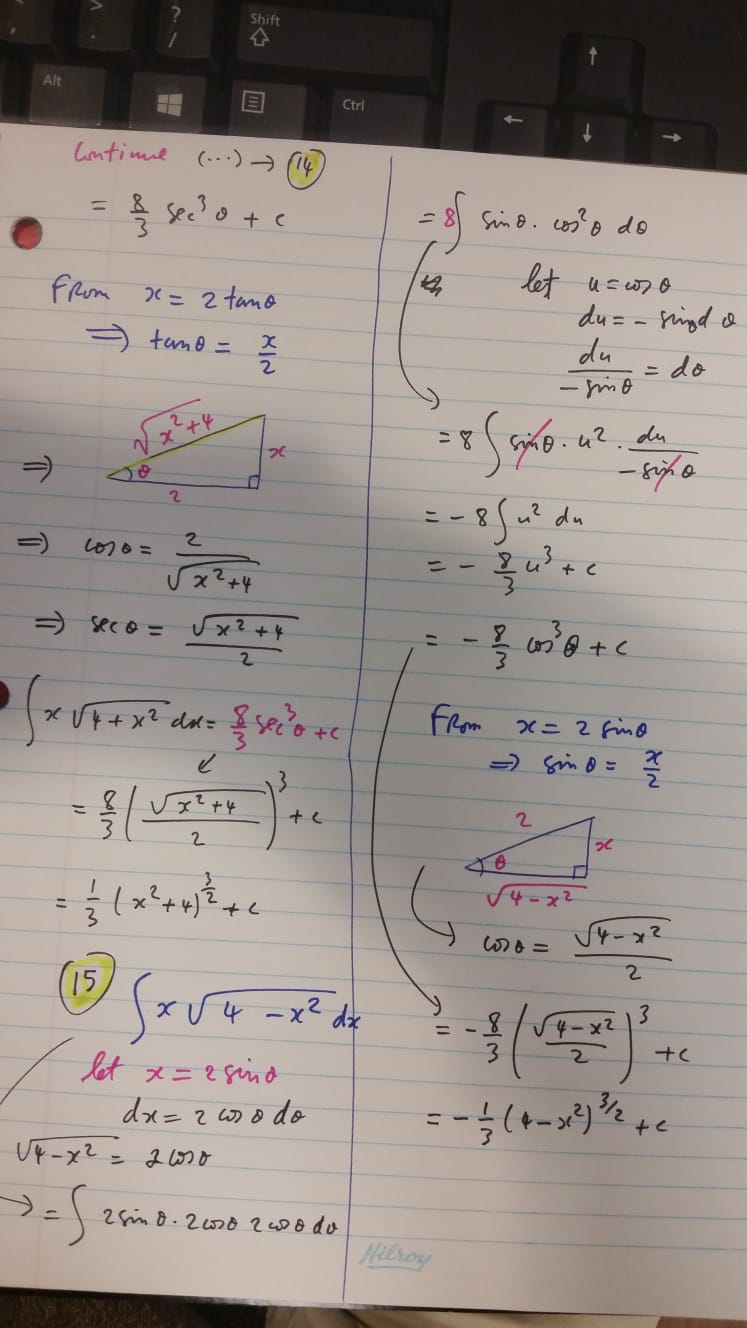 Shift
Alt
Ctrl
?
/
>
.
↑
← ↓ →
Continue (...) → 14
= 8/3 sec³θ + c
From x = 2 tanθ
⇒ tanθ = x/2
√x²+4
θ
x
2
⇒
⇒ cosθ = 2/√(x²+4)
⇒ secθ = √(x²+4)/2
∫ x √(4+x²) dx = 8/3 sec³θ + c
= 8/3 (√(x²+4)/2)³ + c
= 1/3 (x²+4)^(3/2) + c
15 ∫ x √(4-x²) dx
let x = 2 sinθ
dx = 2 cosθ dθ
√(4-x²) = 2 cosθ
→ = ∫ 2 sinθ · 2 cosθ 2 cosθ dθ
= 8∫ sinθ · cos²θ dθ
let u = cosθ
du = - sinθ dθ
du/-sinθ = dθ
= 8 ∫ sinθ · u² · du/-sinθ
= -8 ∫ u² du
= - 8/3 u³ + c
= - 8/3 cos³θ + c
From x = 2 sinθ
⇒ sinθ = x/2
2
θ
x
√(4-x²)
cosθ = √(4-x²)/2
= - 8/3 (√(4-x²)/2)³ + c
= - 1/3 (4-x²)^(3/2) + c
Hilroy